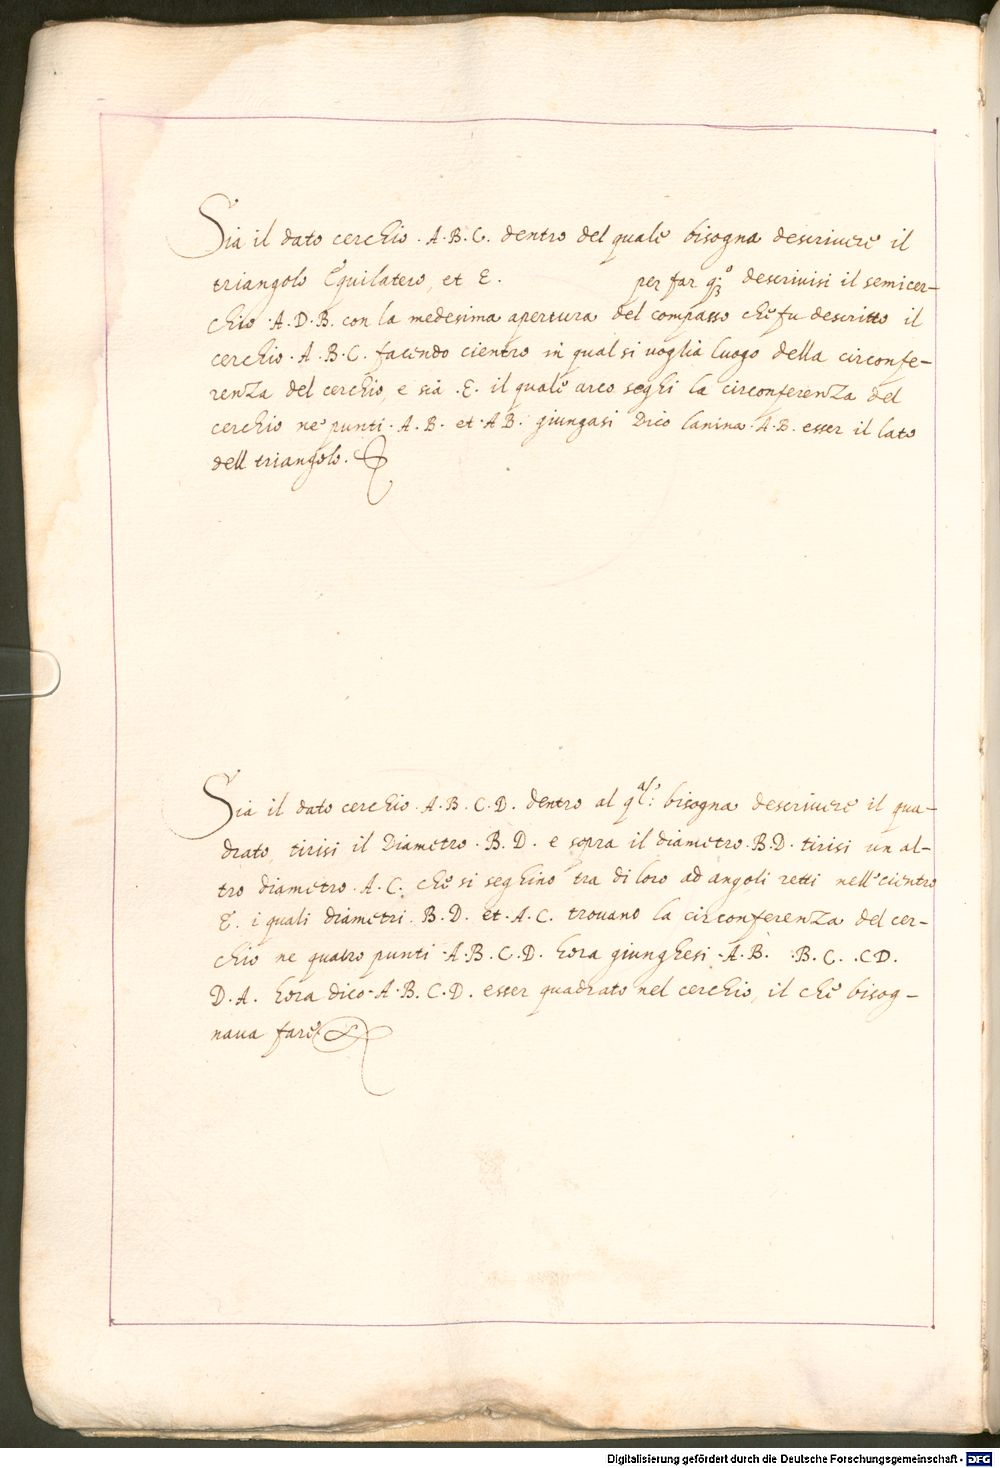 Sia il dato cerchio . A . B . C . dentro del quale bisogna descriuere il
triangolo Equilatero, et E . per far q3º descriuisi il semicer-
chio . A . D . B . con la medesima apertura del compasso che fu descritto il
cerchio . A . B . C . facendo cientro in qual si uoglia luogo della circonfe-
renza del cerchio, e sia . E . il quale arco seghi la circonferenza del
cerchio ne punti . A . B . et . A B . giungasi Dico lanina . A . B . esser il lato
dell triangolo .
Sia il dato cerchio . A . B . C . D . dentro al qal: bisogna descriuere il qua-
drato, tirisi il Diametro . B . D . e sopra il diametro . B . D . tirisi un al-
tro diametro . A . C . che si seghino tra di loro ad angoli retti nell cientro
E . i quali diametri . B . D . et . A . C . trouano la circonferenza del cer-
chio ne quatro punti . A . B . C . D . hora giunghesi . A . B . . B . C . . C D .
D . A . hora dico . A . B . C . D . esser quadrato nel cerchio, il che bisog-
naua fare
Digitalisierung gefördert durch die Deutsche Forschungsgemeinschaft - DFG